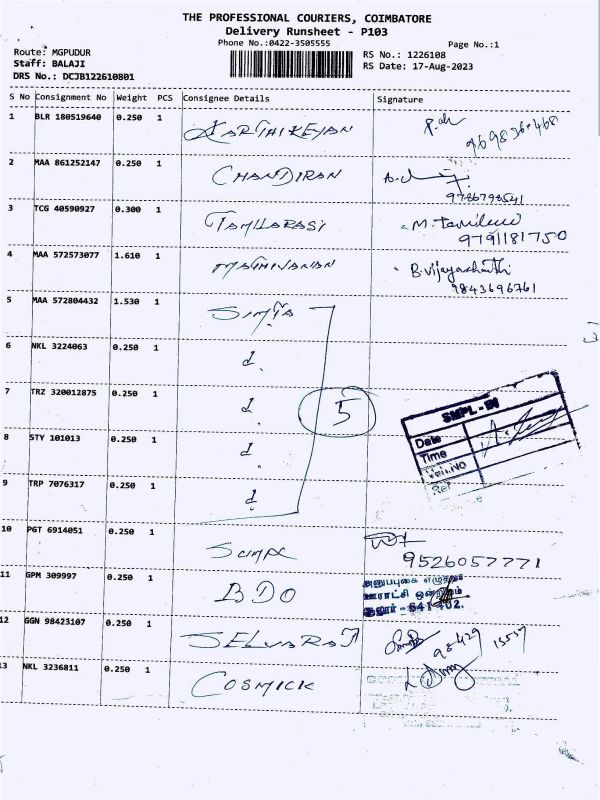 THE PROFESSIONAL COURIERS, COIMBATORE
Delivery Runsheet - P103
Phone No.:0422-3505555
Page No.:1
Route: MGPUDUR
Staff: BALAJI
DRS No.: DCJB122610801
RS No.: 1226108
RS Date: 17-Aug-2023
S No Consignment No Weight PCS Consignee Details Signature
1 BLR 180519640 0.250 1 KARTHIKEYAN
2 MAA 861252147 0.250 1 CHANDIRAN
9786798541
3 TCG 40590927 0.300 1 TAMILARASI
9791181750
4 MAA 572573077 1.610 1 MATHIVANAN
9843696761
5 MAA 572804432 1.530 1 SIMTA
6 NKL 3224063 0.250 1 d.
7 TRZ 320012875 0.250 1 d.
5
8 STY 101013 0.250 1 d.
9 TRP 7076317 0.250 1 d.
SMPL - IN
Date
Time
10 PGT 6914051 0.250 1
9526057771
11 GPM 309997 0.250 1 BDO
சூலூர் - 641 402.
12 GGN 98423107 0.250 1 SELVARAJ
13 NKL 3236811 0.250 1 COSMICK